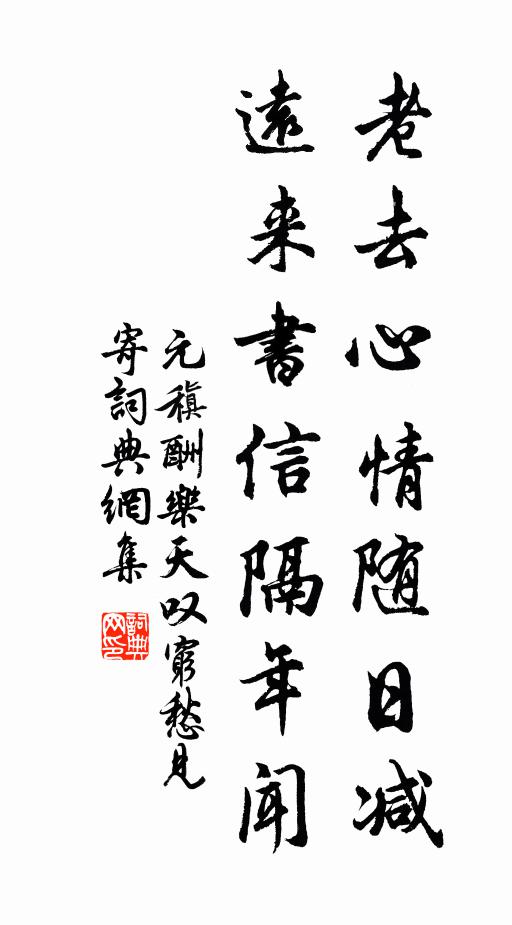 老去心情随日减
遠来書信隔年闻
元稹酬樂天叹窮愁见
寄詞典網集
詞典网印